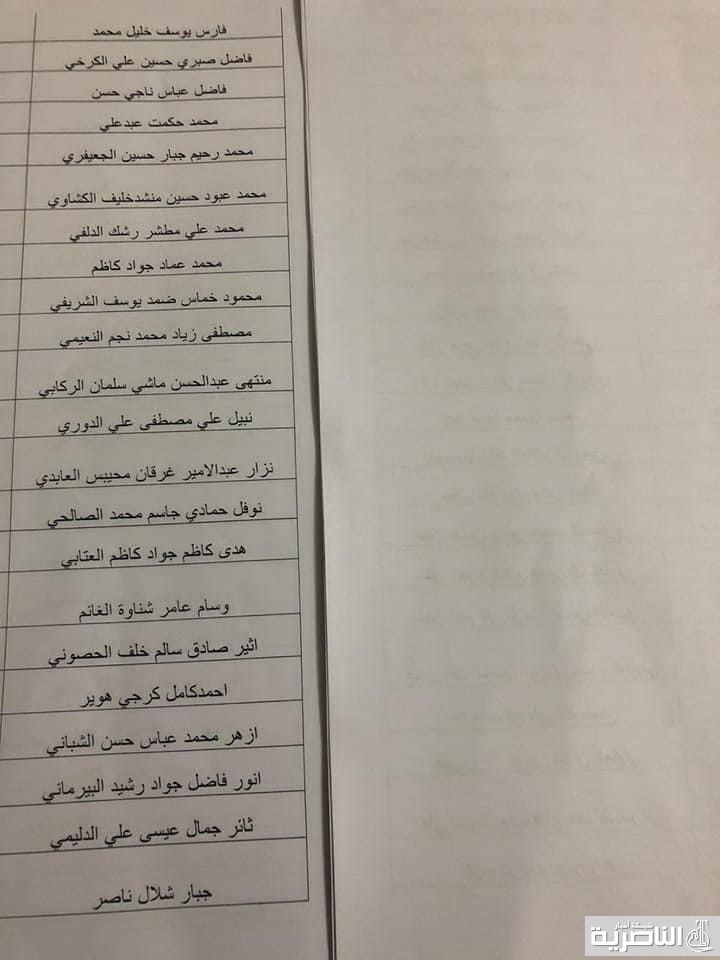 فارس يوسف خليل محمد
فاضل صبري حسين علي الكرخي
فاضل عباس ناجي حسن
محمد حكمت عبدعلي
محمد رحيم جبار حسين الجعيفري
محمد عبود حسين منشدخليف الكشاوي
محمد علي مطشر رشك الدلفي
محمد عماد جواد كاظم
محمود خماس ضمد يوسف الشريفي
مصطفى زياد محمد نجم النعيمي
منتهى عبدالحسن ماشي سلمان الركابي
نبيل علي مصطفى علي الدوري
نزار عبدالامير غرقان محيبس العابدي
نوفل حمادي جاسم محمد الصالحي
هدى كاظم جواد كاظم العتابي
وسام عامر شناوة الغانم
اثير صادق سالم خلف الحصوني
احمدكامل كرجي هوير
ازهر محمد عباس حسن الشباني
انور فاضل جواد رشيد البيرماني
ثائر جمال عيسى علي الدليمي
جبار شلال ناصر
شبكة اخبار
الناصرية